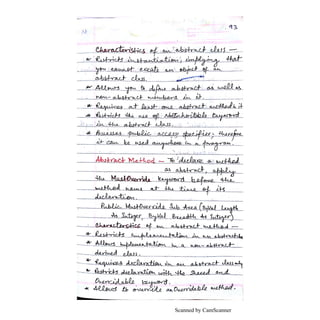 93
Characteristics of an abstract class —
* Restricts instantiation, implying that
you cannot create an object of an
abstract class.
* Allows you to define abstract as well as
non-abstract members in it.
* Requires at least one abstract method in it
* Restricts the use of NotInheritable keyword
in the abstract class.
* Possesses public access specifier; therefore
it can be used anywhere in a program.
Abstract Method — To declare a method
as abstract, apply
the MustOverride keyword before the
method name at the time of its
declaration.
Public MustOverride Sub Area (ByVal Length
As Integer, ByVal Breadth As Integer)
Characterstics of an abstract method —
* Restricts implementation in an abstract
* Allows implementation in a non-abstract
derived class.
* Requires declaration in an abstract class only
* Restricts declaration with the Shared and
Overridable keyword.
* Allows to override an Overridable method.
Scanned by CamScanner